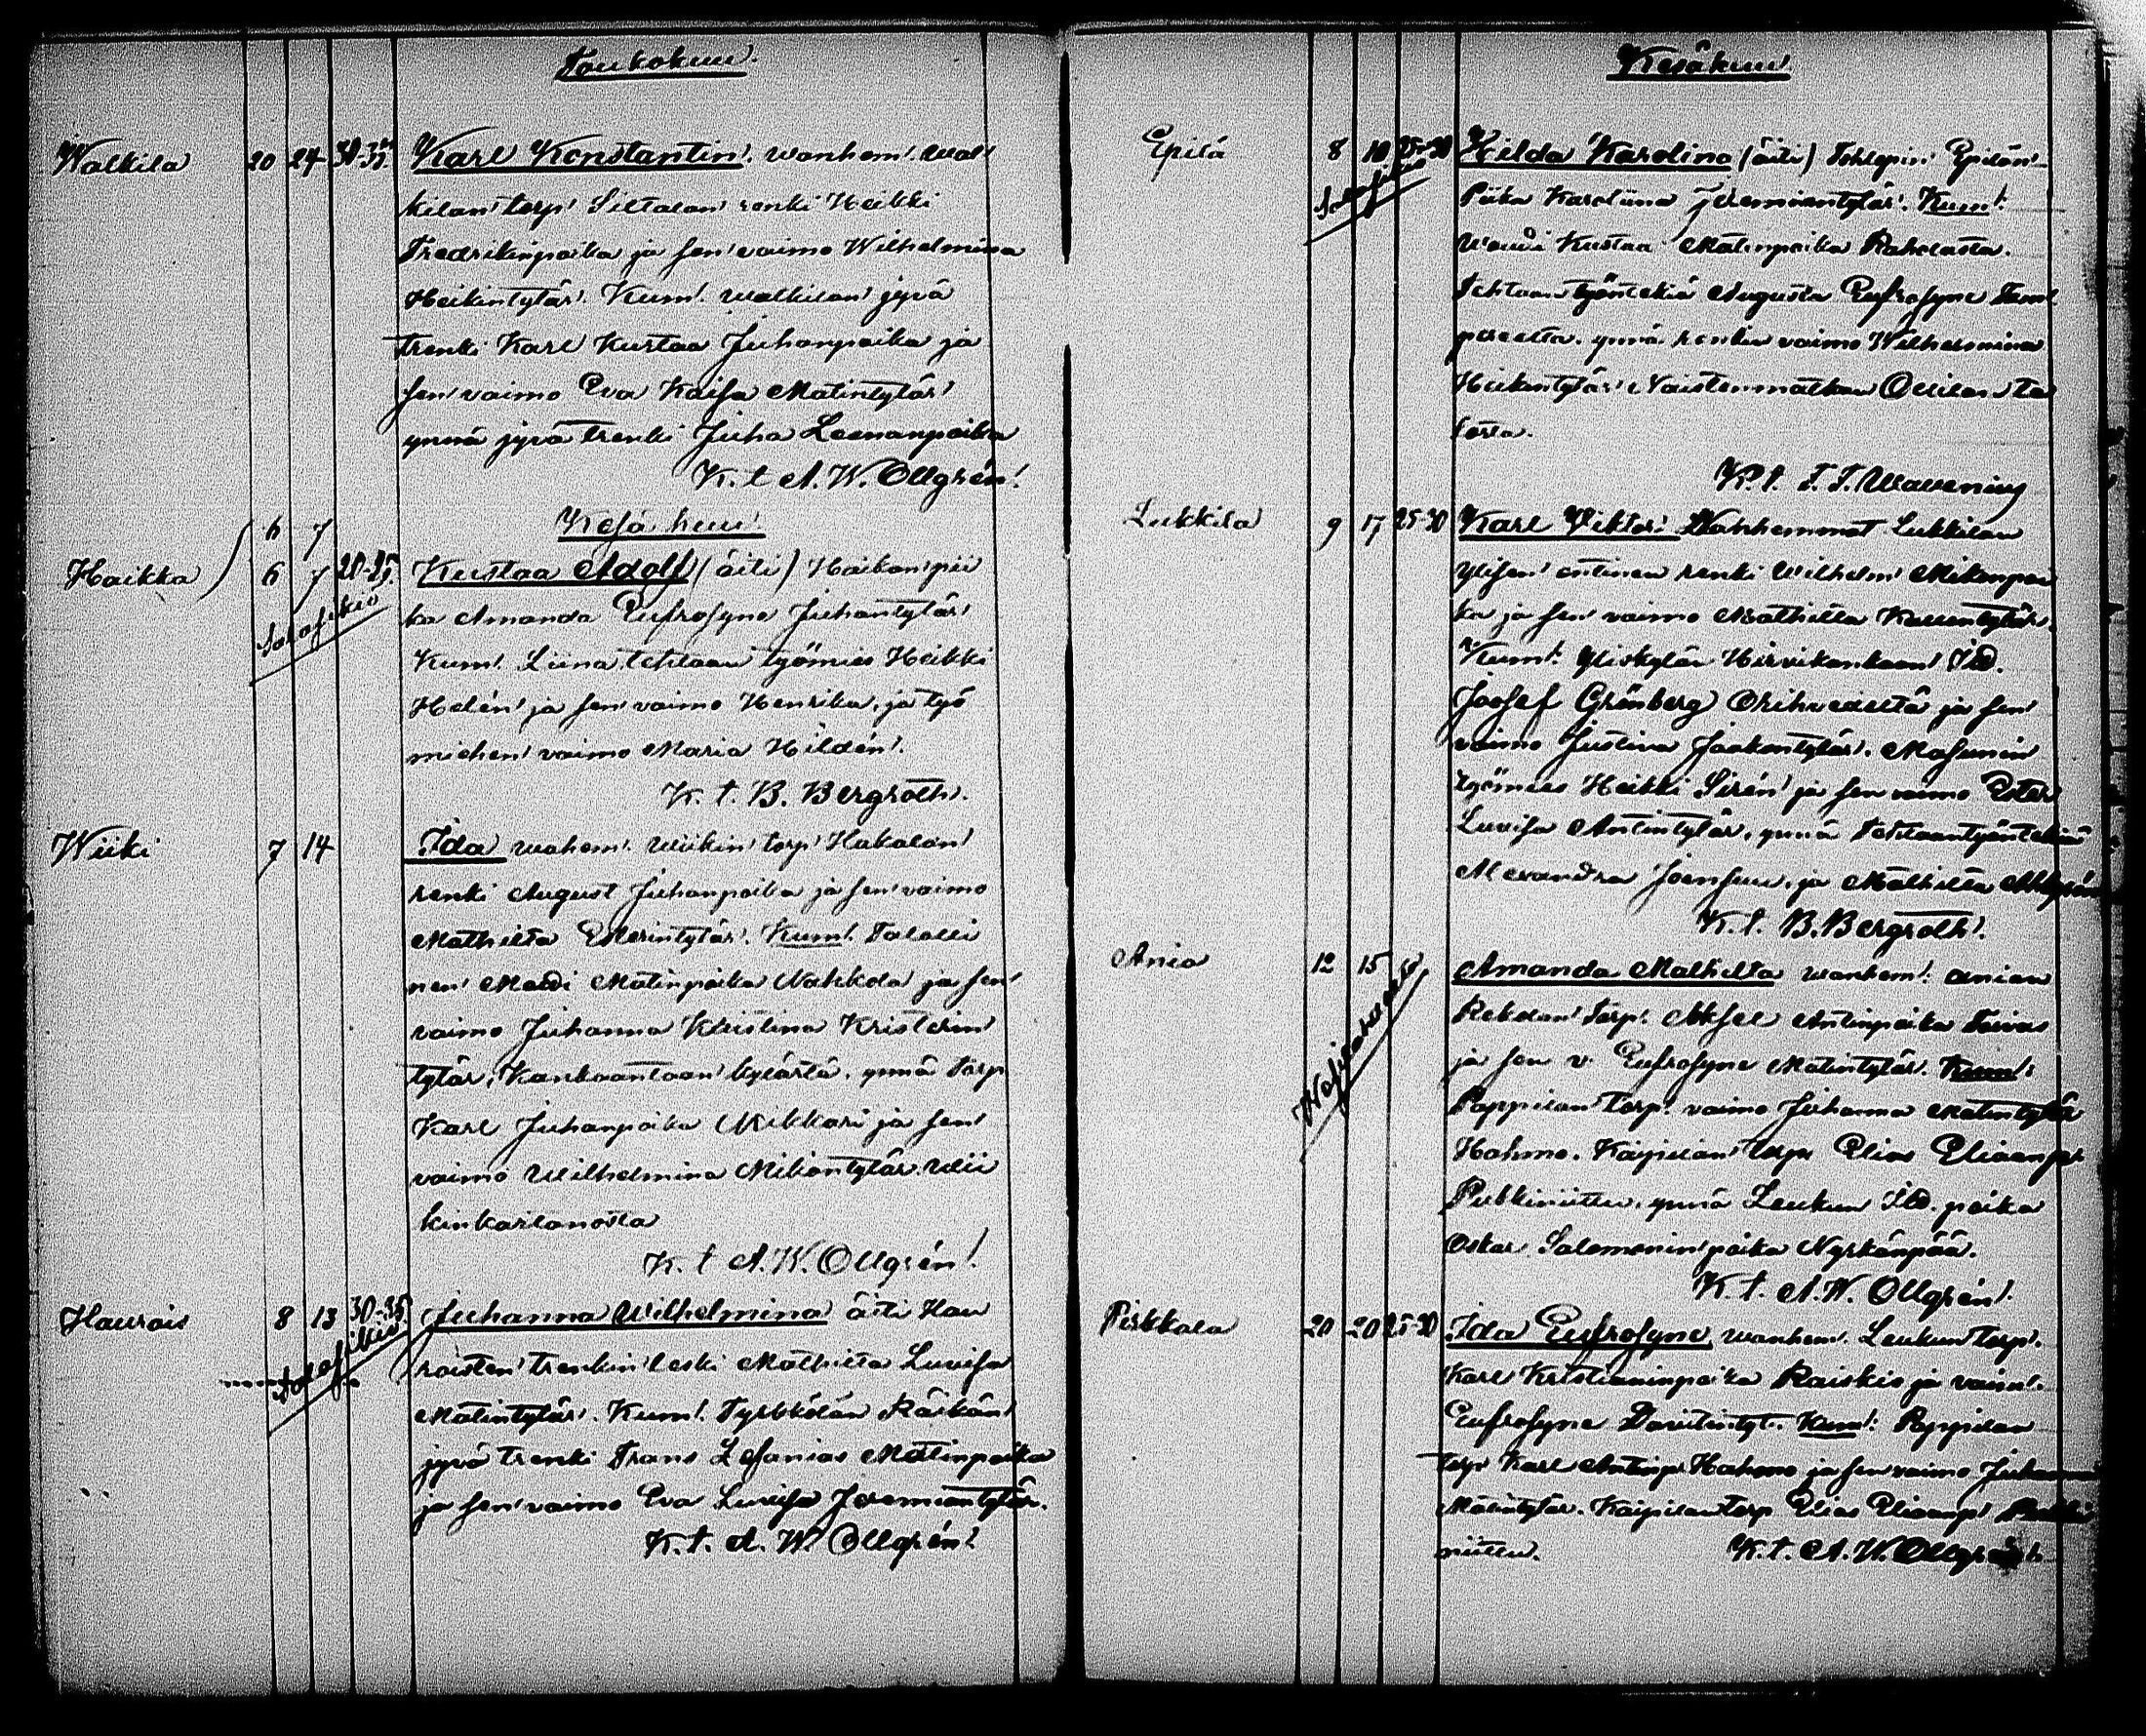 Toukokuu.
Walkila 20 24 30-35. Karl Konstantin. wanhem. Wal
kilan torp. Siltalan renki Heikki
Fredrikinpoika ja sen vaimo Wilhelmina
Heikintytär. Kum. Walkilan jyvä
trenki Karl Kustaa Juhanpoika ja
sen vaimo Eva Kaisa Matintytär
ynnä jyvä trenki Juha Leenanpoika
K. t A. W. Ollgrén.
6 7 Kesä kuu
Haikka 6 7 20-25. Kustaa Adolf (äiti) Haikan pii
ka Amanda Eufrosyne Juhantytär
Kum. Liina tehtaan työmies Heikki
Helén ja sen vaimo Henrika, ja työ
miehen vaimo Maria Hildén.
K. t. B. Bergroth.
Wiiki 7 14 Ida wahem. Wiikin torp. Hakalan
renki August Juhanpoika ja sen vaimo
Mathilta Esterintytär. Kum. Talolli
nen Matti Matinpoika Nahkola ja sen
vaimo Juhanna Kristina Kristerin
tytär, Kankaantaan kylästä, ynnä torp
Karl Juhanpoika Mikkari ja sen
vaimo Wilhelmina Mikontytär Wii
kinkartanosta
K. t A. W. Ollgrén.
Haurais 8 13 30-35. Juhanna Wilhelmina äiti Hau
raisten trenkin leski Mathilta Luvisa
Matintytär. Kum. Tyrkkölän Räikän
jyvä trenki Frans Lefanias Matinpoika
ja sen vaimo Eva Luvisa Jeremiantytär.
K. t. A. W. Ollgrén.
Kesäkuu
Epilä 8 10 25-30 Hilda Karolina (äiti) Tohlopin Epilän
Piika Karoliina Jeremiantytär. Kum.
Wouti Kustaa Matinpoika Raholasta.
Tehtaan työntekiä Augusta Eufrosyne Tam
pereelta. ynnä renkin vaimo Wilhelmina
Heikintytär Naistenmatkan Ollilan ta
losta.
K. t. F. F. Wavening
Lukkila 9 17 25-30 Karl Viktor. Wanhemmat Lukkilan
ylisen entinen renki Wilhelm Mikonpoi
ka ja sen vaimo Mathilta Kallentytär.
Kum. Yliskylän Hirvikankaan Itd.
Joosef Grönberg Orihvedeltä ja sen
vaimo Justina Jaakontytär. Masunin
työmies Heikki Sirén ja sen vaimo Ester
Luvisa Antintytär, ynnä Tehtaantyöntekiä
Alexandra Joensuu, ja Mathilta
K. t. B. Bergroth.
Ania 12 15 Amanda Mathilta wanhem. Anian
Rekolan torp. Aksel Antinpoika Taivas
ja sen v. Eufrosyne Matintytär. Kum.
Pappilan torp. vaimo Juhanna Matintytär
Hahmo. Kaipilan torp Elias Eliaanp.
Pulkkiniittu, ynnä Leukun Itd. poika
Oskar Salomonin poika Nyrkänpää.
K. t. A. W. Ollgrén.
Pirkkala 20 20 25-30 Ida Eufrosyne, wanhem. Leukun torp.
Karl Kristianinpoika Raiskio ja vaim.
Eufrosyne Davitintyt. Kum. Pappilan
torp Karl Antinp. Hahmo ja sen vaimo Juhanna
Matintytär. Kaipilan torp Elias Eliaanp.
niittu. K. t. A. W. Ollgrén